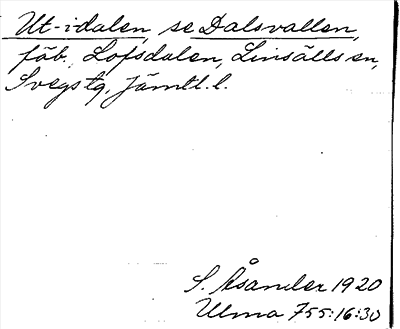 Ut-i-dalen, se Dalsvallen,
fäb., Lofsdalen, Linsälls sn,
Svegs tg, Jämtl. l.
S. Åsander 1920
Ulma 755:16:30